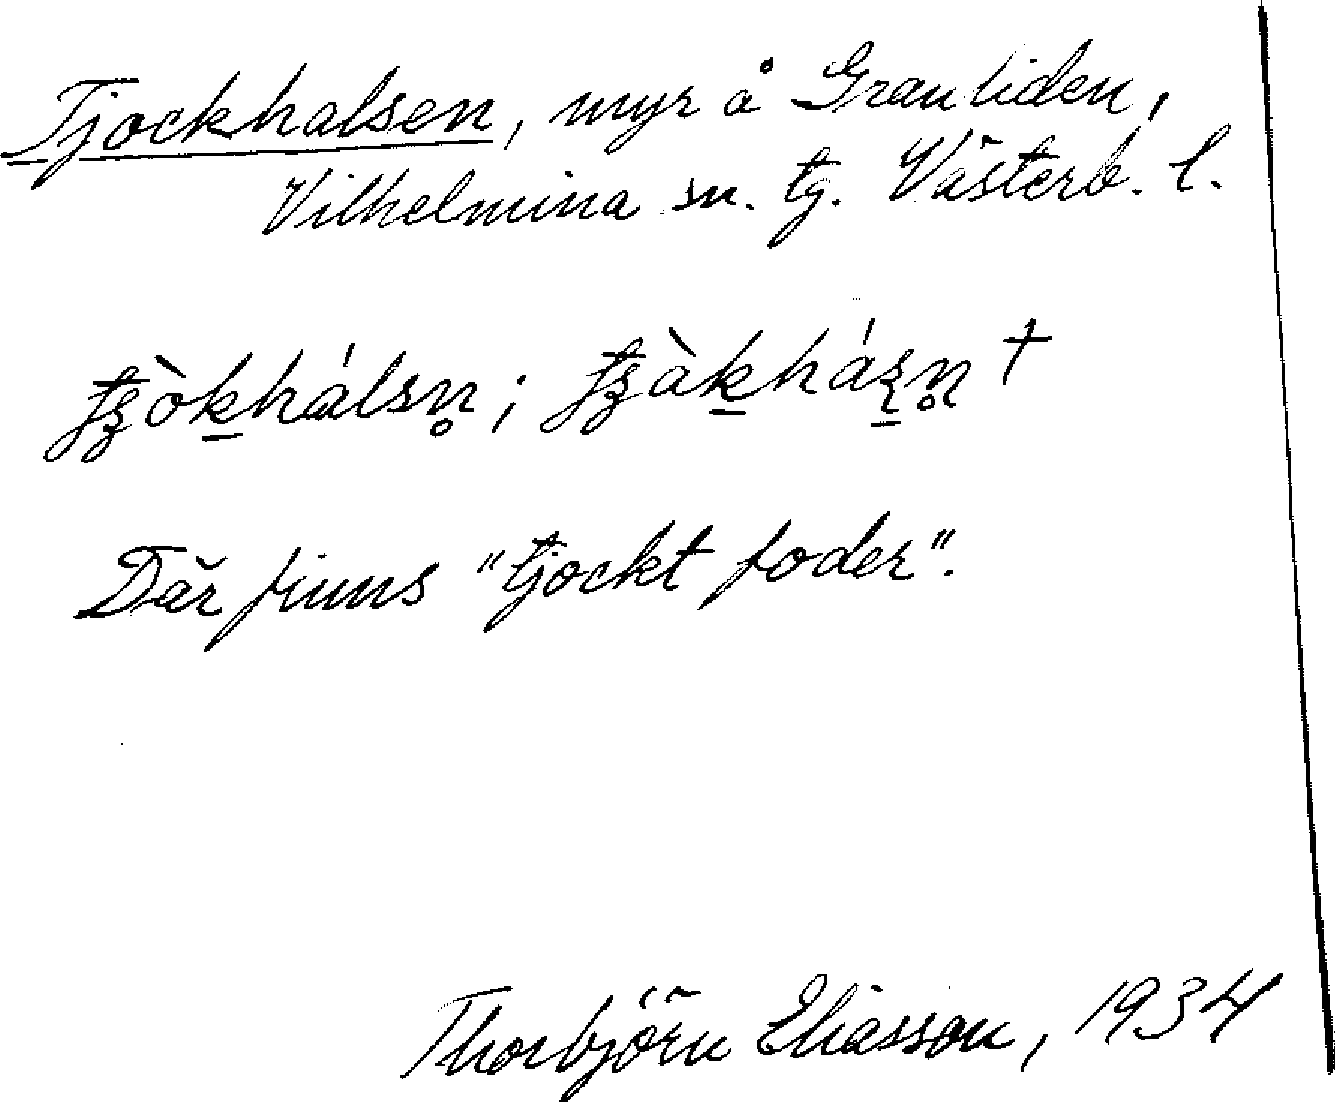 Tjockhalsen, myr å Granliden,
Vilhelmina sn. tg. Västerb. l.
tʒòk̲hálsn̥; tʒàk̲hás̲n̥ †
Där finns "tjockt foder".
Thorbjörn Eliasson, 1934